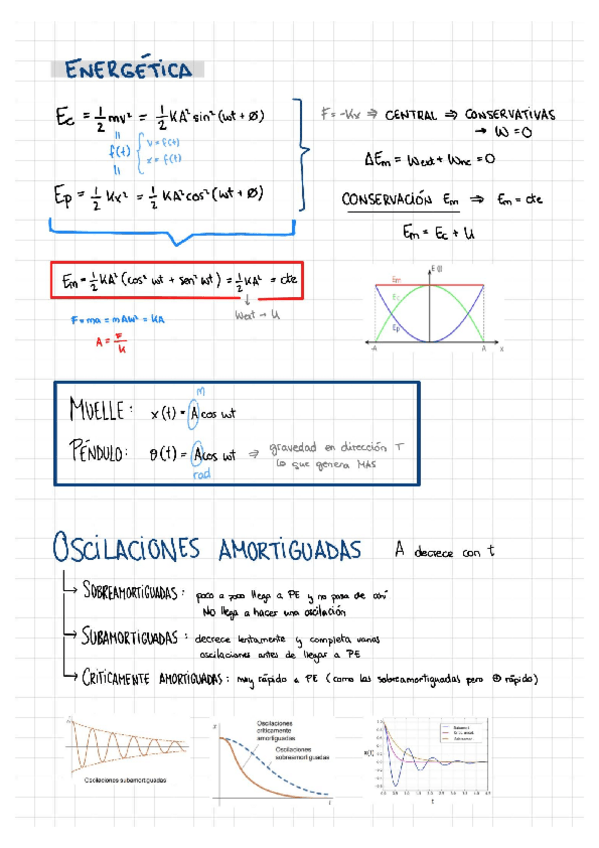 ENERGÉTICA
Ec = 1/2 mv² = 1/2 KA² sin² (wt + ø)
f(t) { v = f(t)
x = f(t)
Ep = 1/2 Kx² = 1/2 KA² cos² (wt + ø)
F = -Kx ⇒ CENTRAL ⇒ CONSERVATIVAS
→ W = 0
ΔEm = Wext + Wnc = 0
CONSERVACIÓN Em ⇒ Em = cte
Em = Ec + U
Em = 1/2 KA² (cos² wt + sen² wt) = 1/2 KA² = cte
↓
Wext → U
F = ma = mAw² = KA
A = F/K
E (J)
Em
Ec
Ep
-A A x
m
MUELLE: x(t) = A cos wt
PÉNDULO: θ(t) = A cos wt ⇒ gravedad en dirección T
lo que genera MAS
rad
OSCILACIONES AMORTIGUADAS A decrece con t
SOBREAMORTIGUADAS: poco a poco llega a PE y no pasa de ahí
NO llega a hacer una oscilación
SUBAMORTIGUADAS: decrece lentamente y completa varias
oscilaciones antes de llegar a PE
CRÍTICAMENTE AMORTIGUADAS: muy rápido a PE (como las sobreamortiguadas pero ⊕ rápido)
Oscilaciones subamortiguadas
Oscilaciones
críticamente
amortiguadas
Oscilaciones
sobreamortiguadas
x
t
x(t)
t